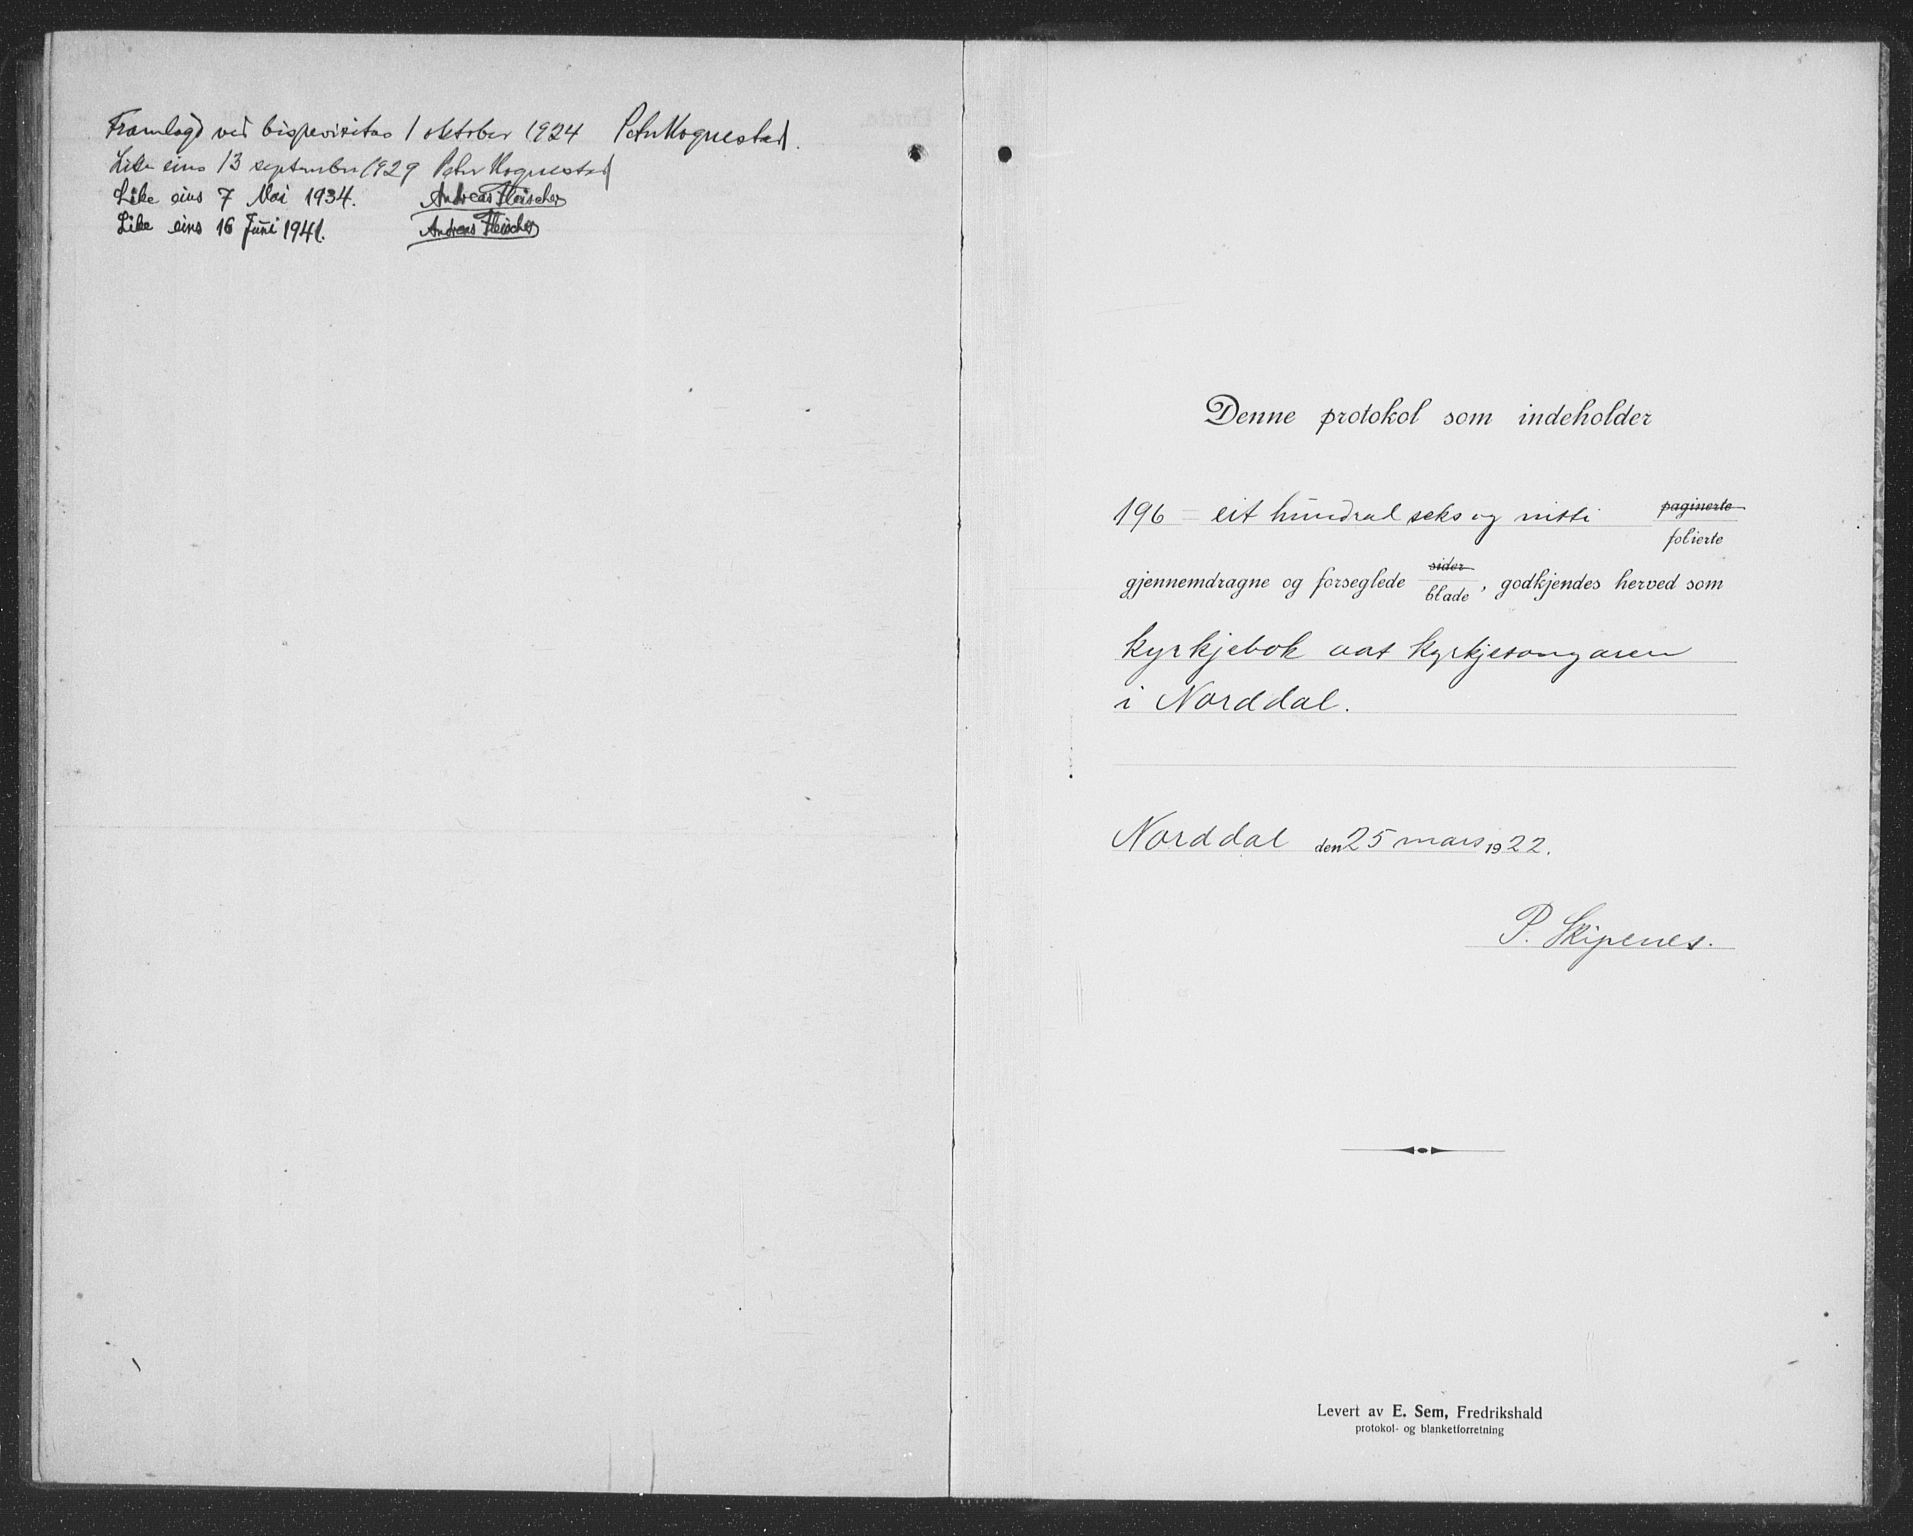 Framlagd ved bispevisitas 1 oktober 1924 Peter Hognestad.
Like eins 13 september 1929 Peter Hognestad
Like eins 7 Mai 1934. Andreas Fleischer
Like eins 16 Juni 1941. Andreas Fleischer
Denne protokol som indeholder
196 = eit hundrad seks og nitti paginerte
folierte
gjennemdragne og forseglede sider blade, godkjendes herved som
kyrkjebok aat kyrkjesongaren
i Norddal.
Norddal den 25 mars 1922.
P. Skipenes.
Levert av E. Sem, Fredrikshald
protokol- og blanketforretning